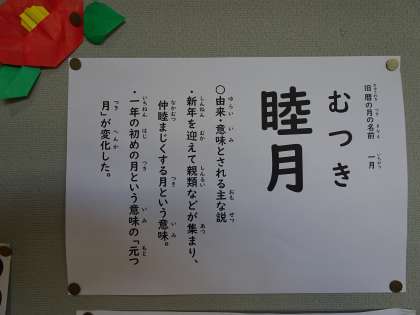 旧暦の月の名前　一月
むつき
睦月
○由来・意味とされる主な説
・新年を迎えて親類などが集まり、
仲睦まじくする月という意味。
・一年の初めの月という意味の「元つ
月」が変化した。